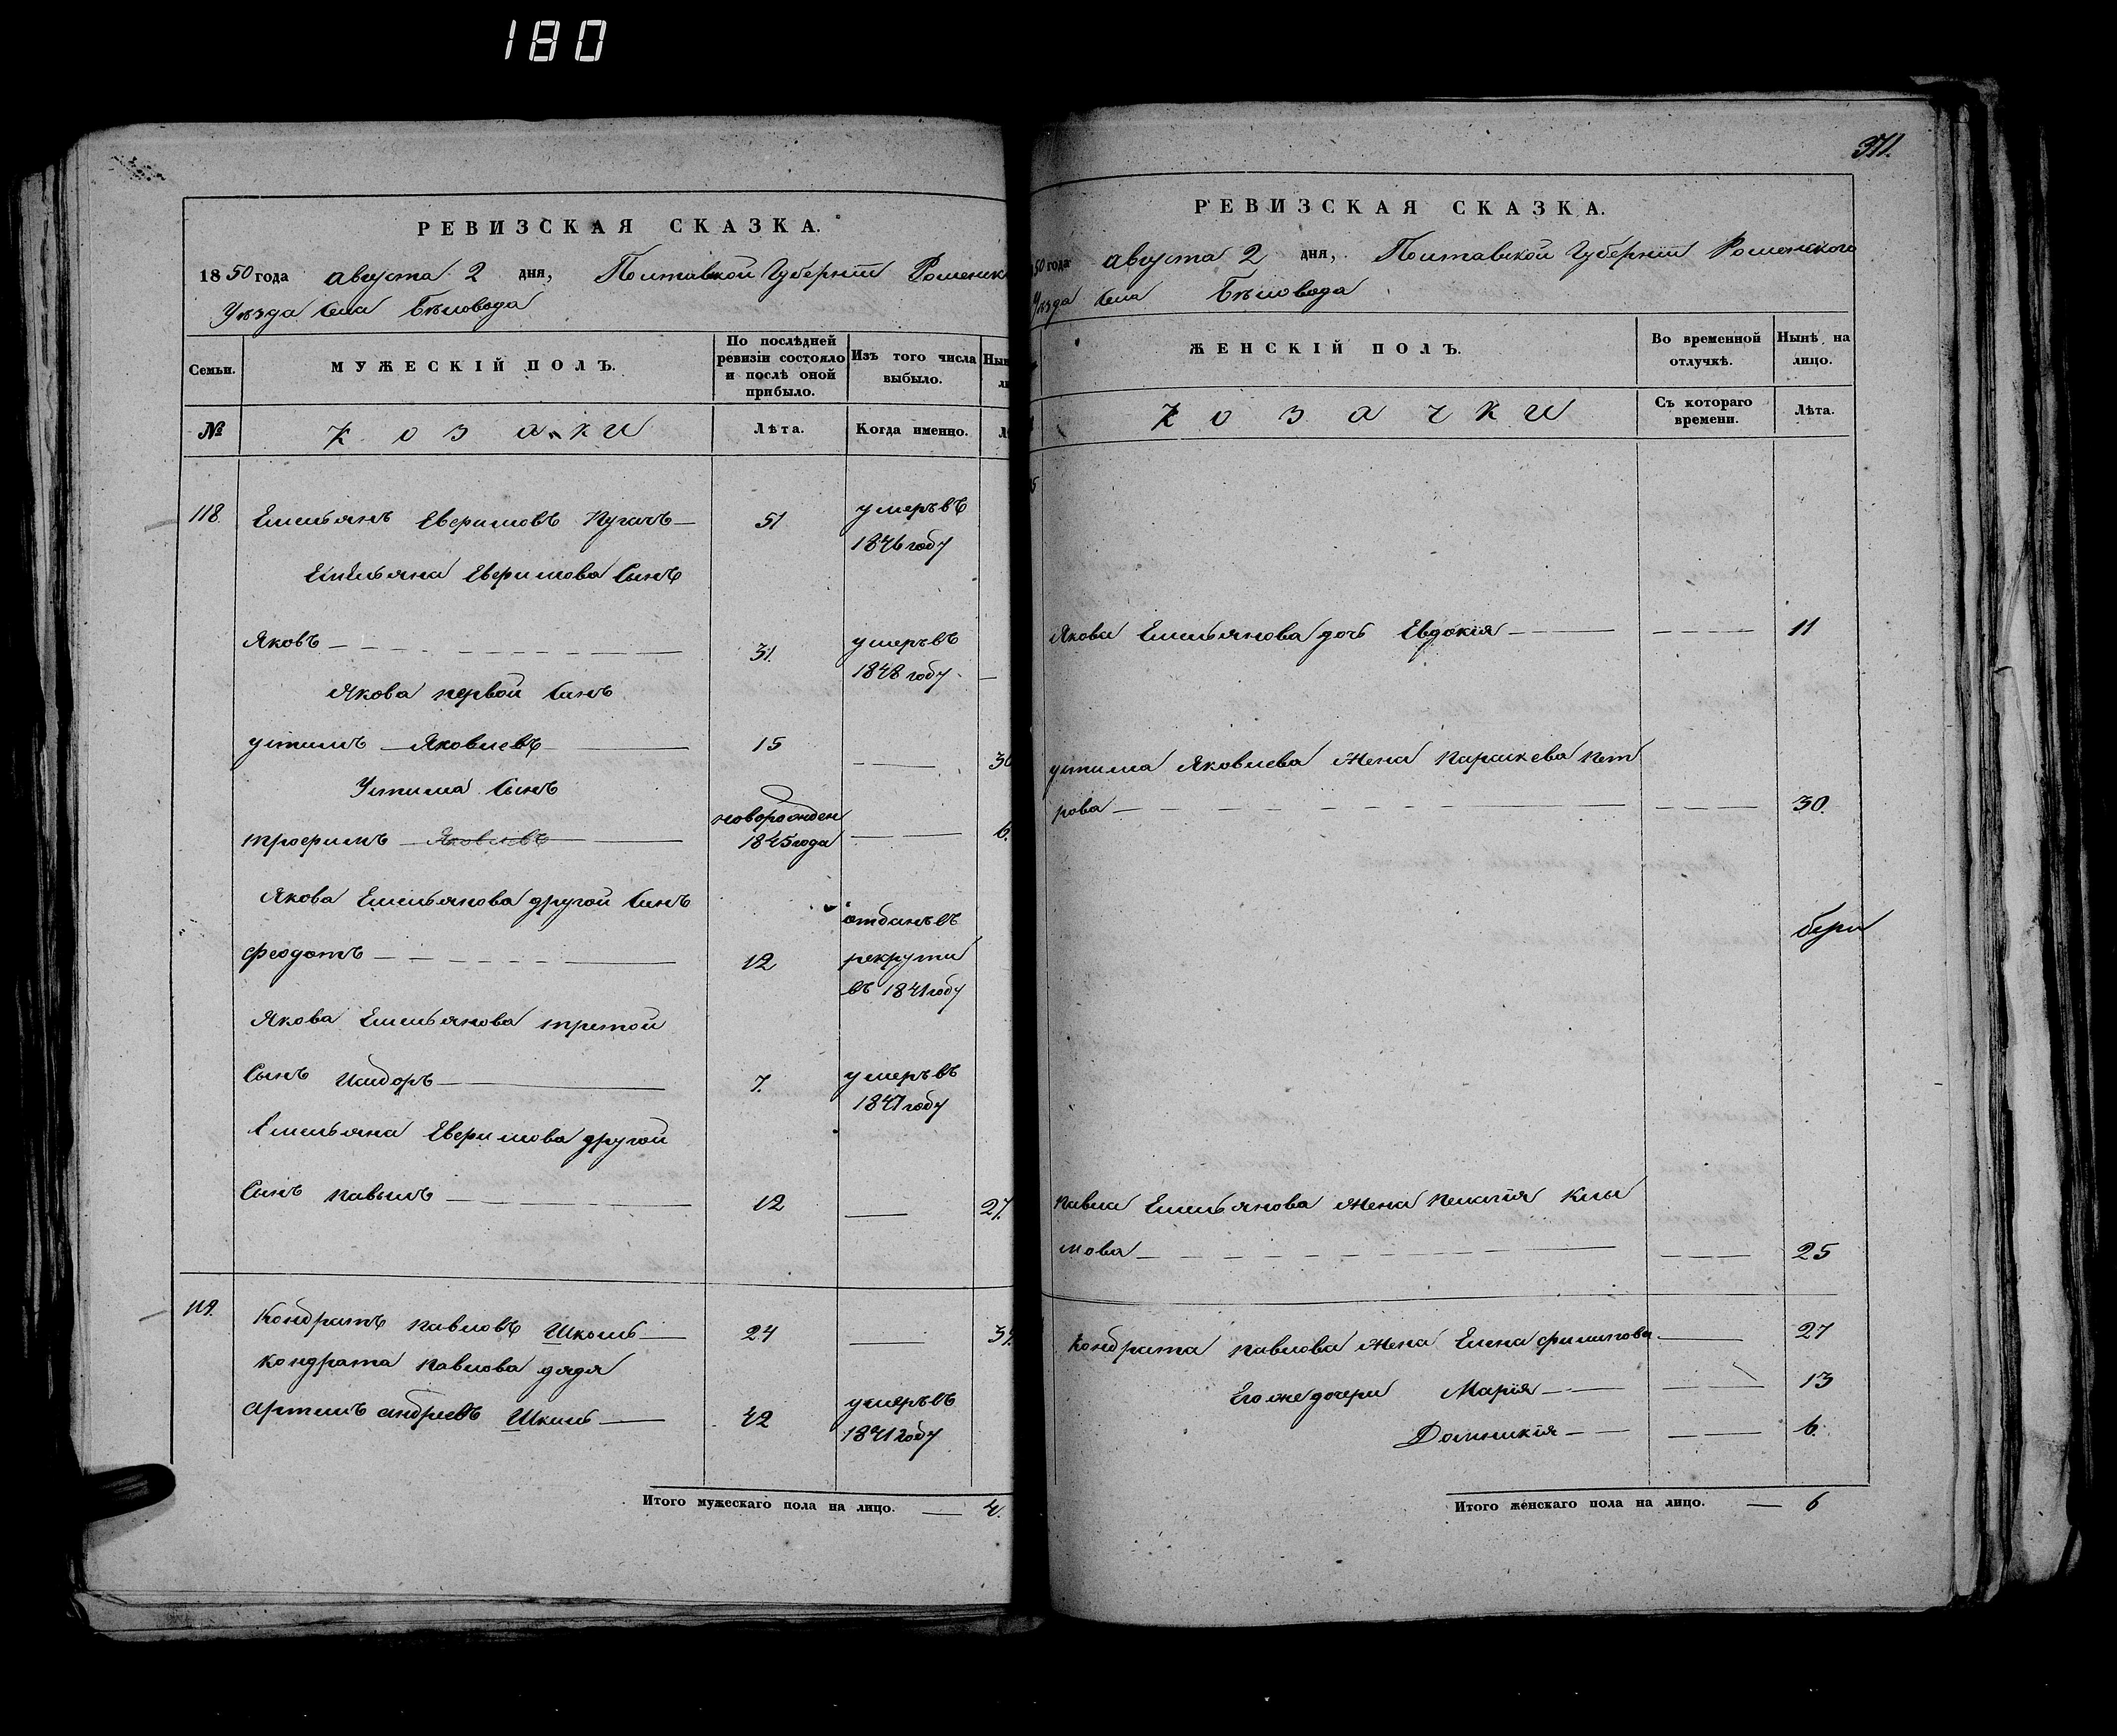 180
РЕВИЗСКАЯ СКАЗКА.
1850 года августа 2 дня, Полтавской Губернiи Роменск
Уѣзда села Бѣловода
Семьи.
МУЖЕСКІЙ ПОЛЪ.
По послѣдней
ревизіи состояло
и послѣ оной
прибыло.
Изъ того числа
выбыло.
Ны
ли
№
Козаки
Лѣта.
Когда именно.
Лѣ
118. Емельянъ Евфимовъ Пугачъ 51 умеръ въ
1846 году
Емельяна Евфимова Сынъ
Яковъ 31. умеръ въ
1848 году
Якова первой Синъ
устимъ Яковлевъ 15 30
Устима Сынъ
новорожден
трофимъ Яковлевъ 1845 года 6.
Якова Емельянова другой Синъ
отданъ въ
феодотъ 12 рекрути
въ 1841 году
Якова Емельянова третой
Сынъ Исидоръ 7. умеръ въ
1847 году
Емельяна Евфимова другой
Синъ павелъ 12 27.
119. Кондратъ павловъ Школь 24 39.
Кондрата павлова дядя
Артемъ андреевъ 42 умеръ въ
1841 году
Итого мужескаго пола на лицо. 4.
371.
РЕВИЗСКАЯ СКАЗКА.
50 года августа 2 дня, Полтавской Губернiи Роменского
Уѣзда села Бѣловода
ЖЕНСКІЙ ПОЛЪ.
Во временной
отлучкѣ.
Нынѣ на
лицо.
Козачки
Съ котораго
времени.
Лѣта.
Якова Емельянова дочь Евдокiя 11
устима Яковлева Жена Параскева пет
рова 30.
Павла Емельянова Жена пелагiя Кли
мова 25
Кондрата павлова Жена Елена филипова 27
Его же дочери Марiя 13
Домникiя 6.
Итого женскаго пола на лицо. 6